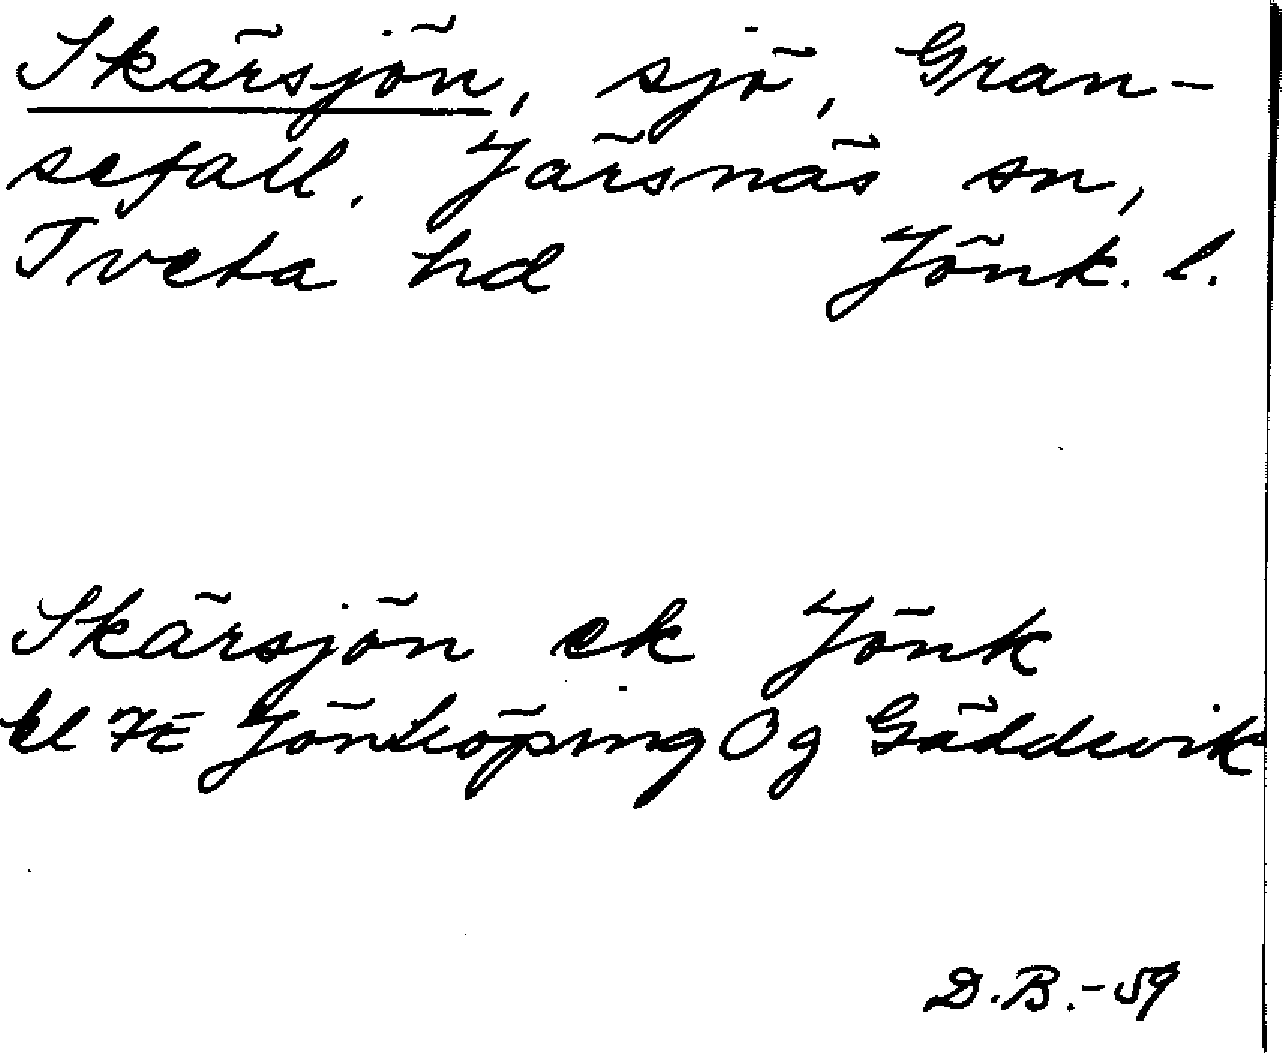 Skärsjön, sjö, Gran-
sefall. Järsnäs sn,
Tveta hd Jönk. l.
Skärsjön ek Jönk
bl 7E Jönköping Og Gäddevik
D.B.-59